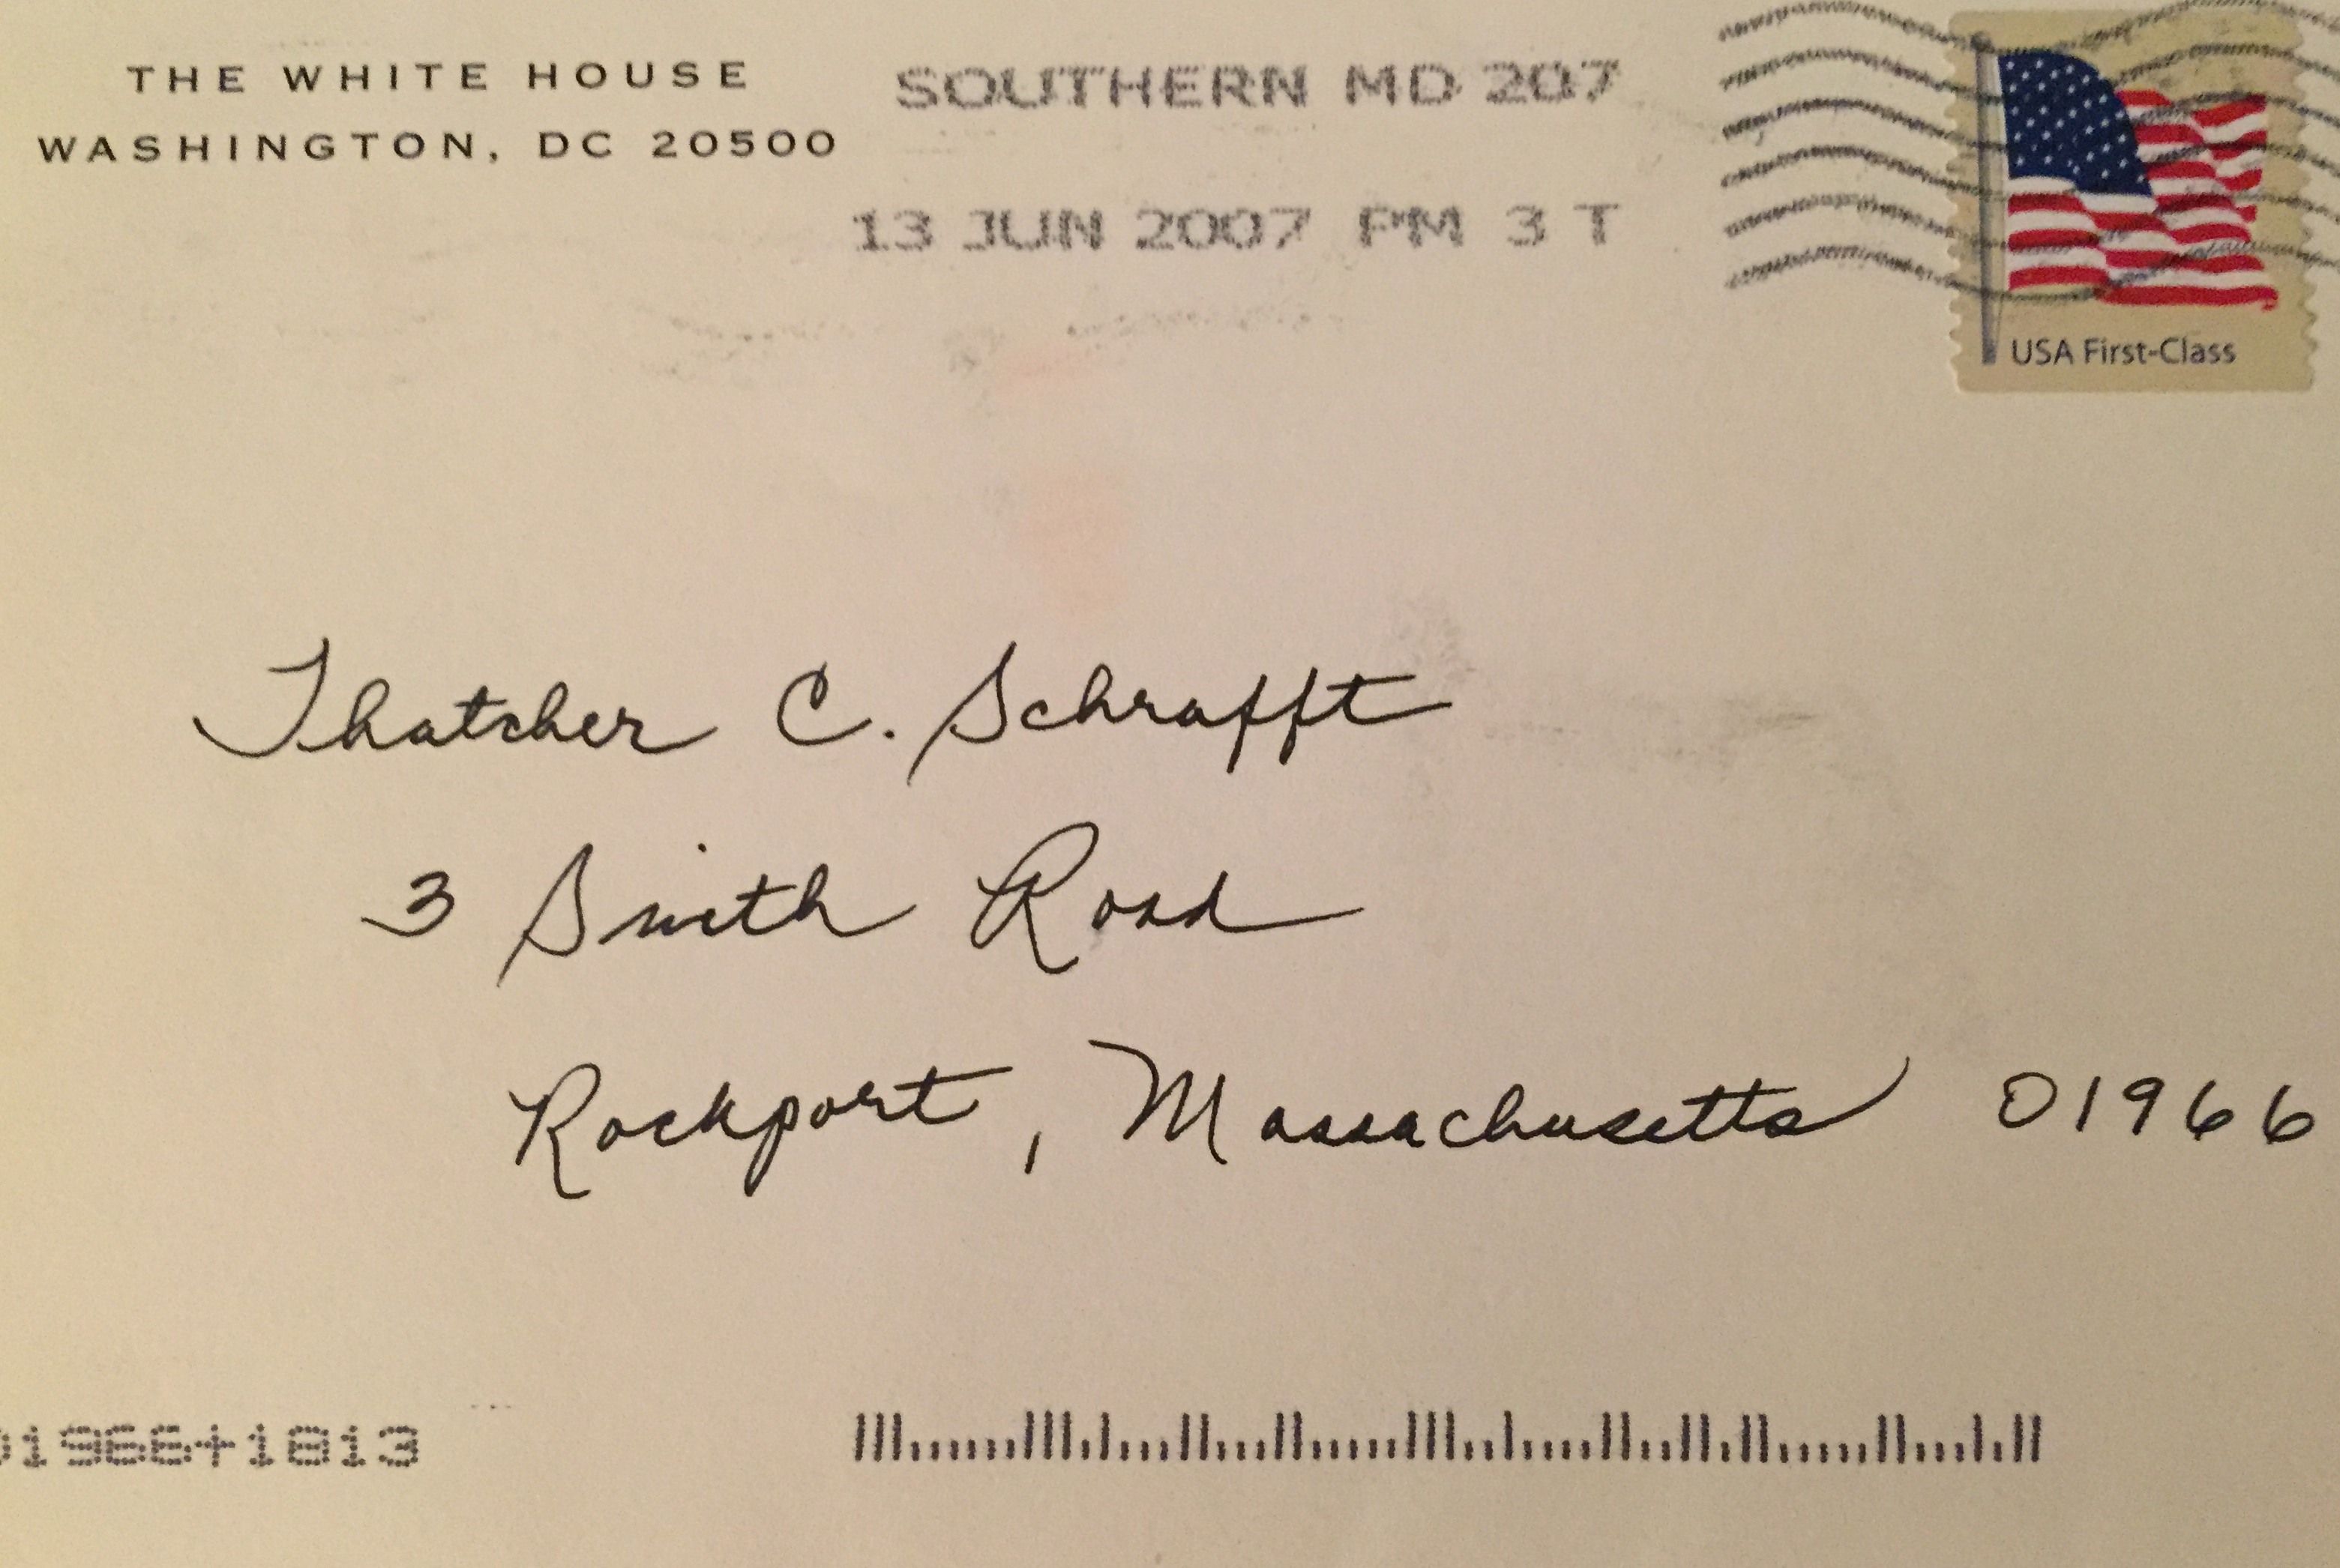 THE WHITE HOUSE
WASHINGTON, DC 20500
SOUTHERN MD 207
13 JUN 2007 PM 3 T
USA First-Class
Thatcher C. Schrafft
3 Smith Road
Rockport, Massachusetts 01966
01966+1813